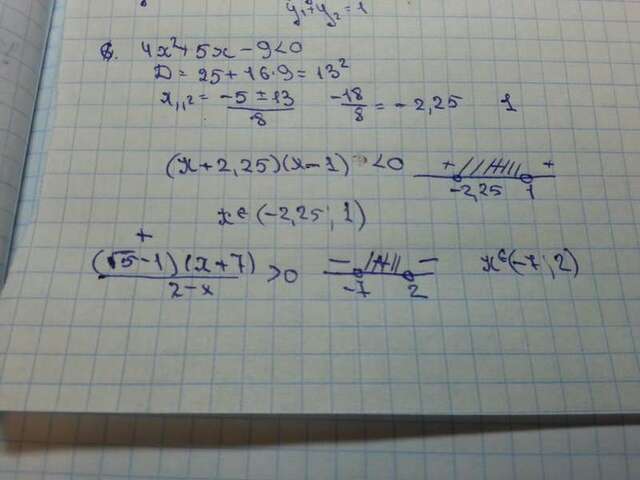 y₁+y₂=1
6. 4x²+5x-9<0
D=25+16·9=13²
x₁,₂= (-5±13)/8   -18/8 = -2,25   1
(x+2,25)(x-1) <0   + +
-2,25 1
x∈(-2,25; 1)
+
(√5-1)(x+7)/(2-x) >0   — —   x∈(-7; 2)
-7 2